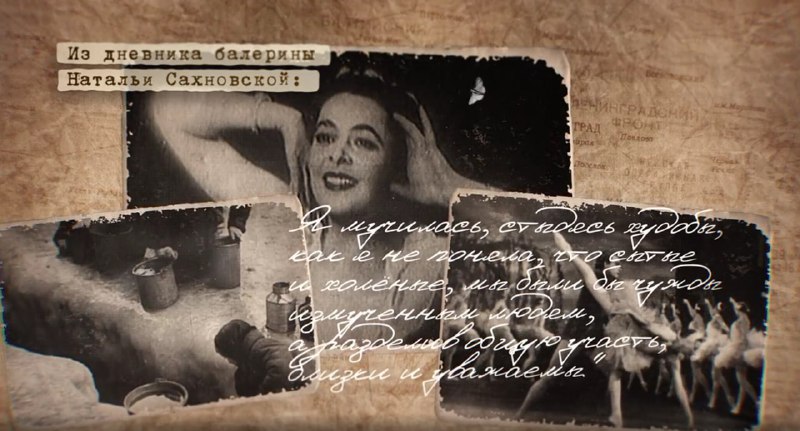 Из дневника балерины
Натальи Сахновской:
ЛЕНИНГРАДСКИЙ
ФРОНТ
Я мучилась, стыдясь худобы,
как я не поняла, что сытые
и холёные, мы были бы чужды
измученным людям,
а разделив общую участь,
близки и уважаемы"